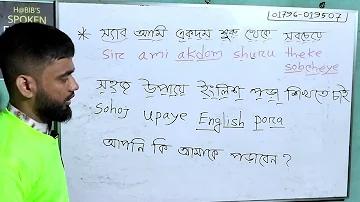 H@BIB'S
SPOKEN
01796-019507
* স্যার আমি একদম শুরু থেকে সবচেয়ে
Sir ami akdom shuru theke sobcheye
সহজ উপায়ে ইংলিশ পড়া শিখতে চাই
Sohoj upaye English pora
আপনি কি আমাকে পড়াবেন?